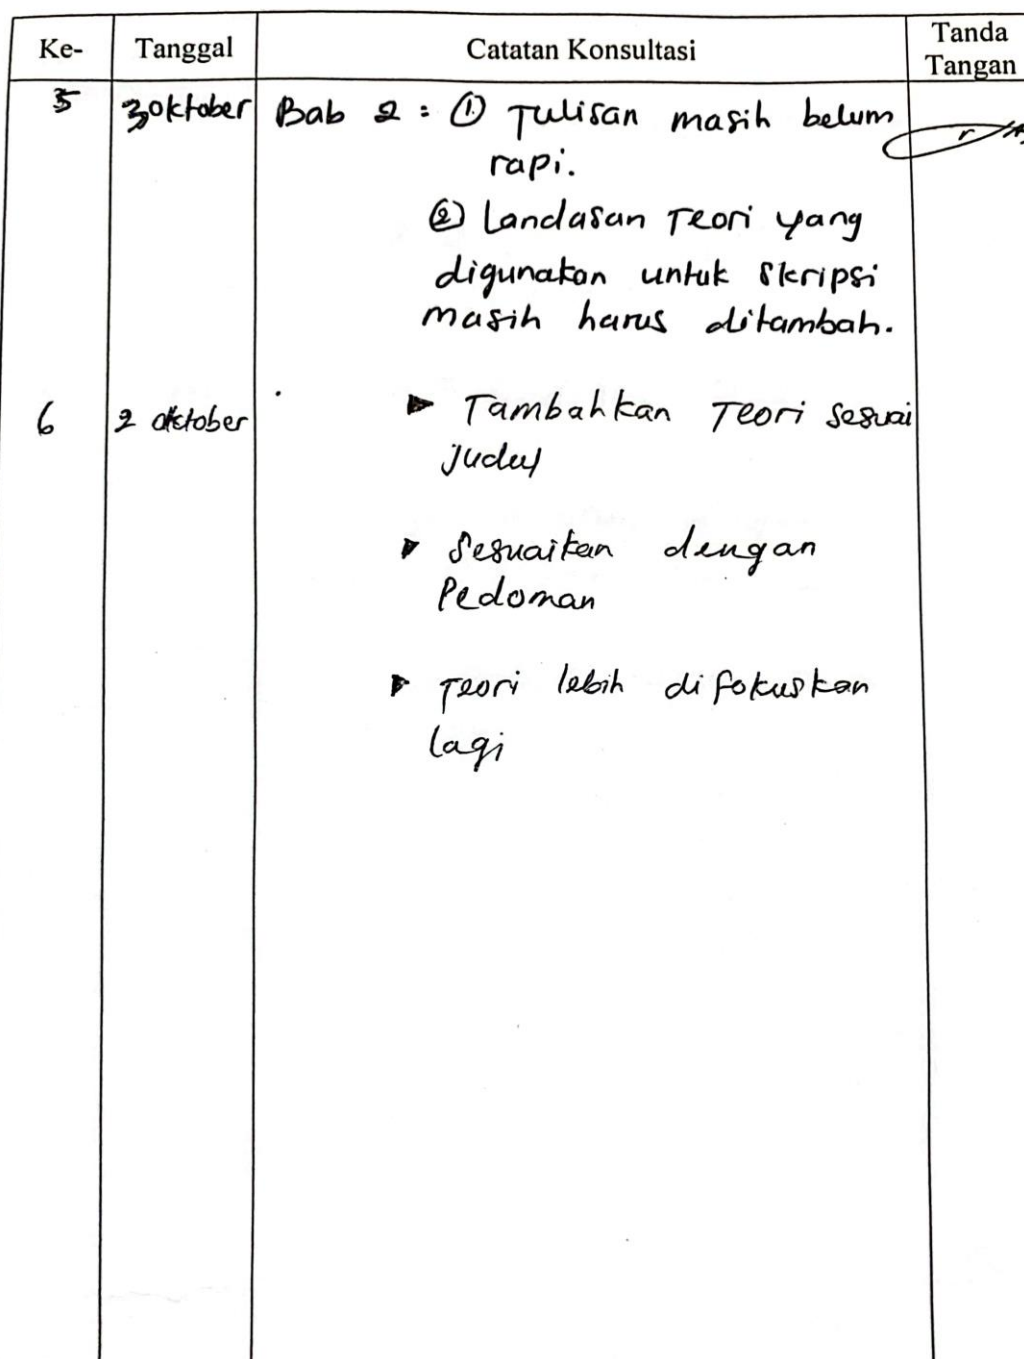 Ke- Tanggal Catatan Konsultasi Tanda Tangan
5 3 oktober Bab 2 : ① Tulisan masih belum
rapi.
② Landasan Teori yang
digunakan untuk skripsi
masih harus ditambah.
6 2 oktober ► Tambahkan Teori sesuai
judul
► Sesuaikan dengan
Pedoman
► Teori lebih difokuskan
lagi